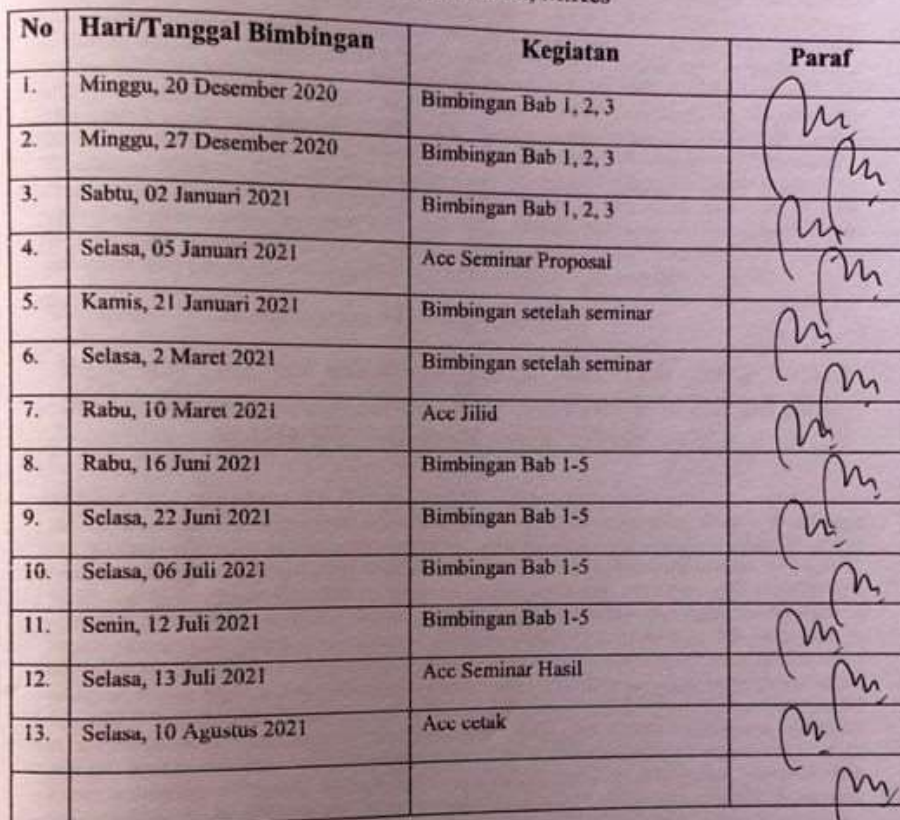 No Hari/Tanggal Bimbingan Kegiatan Paraf
1. Minggu, 20 Desember 2020 Bimbingan Bab 1, 2, 3
2. Minggu, 27 Desember 2020 Bimbingan Bab 1, 2, 3
3. Sabtu, 02 Januari 2021 Bimbingan Bab 1, 2, 3
4. Selasa, 05 Januari 2021 Acc Seminar Proposal
5. Kamis, 21 Januari 2021 Bimbingan setelah seminar
6. Selasa, 2 Maret 2021 Bimbingan setelah seminar
7. Rabu, 10 Maret 2021 Acc Jilid
8. Rabu, 16 Juni 2021 Bimbingan Bab 1-5
9. Selasa, 22 Juni 2021 Bimbingan Bab 1-5
10. Selasa, 06 Juli 2021 Bimbingan Bab 1-5
11. Senin, 12 Juli 2021 Bimbingan Bab 1-5
12. Selasa, 13 Juli 2021 Acc Seminar Hasil
13. Selasa, 10 Agustus 2021 Acc cetak